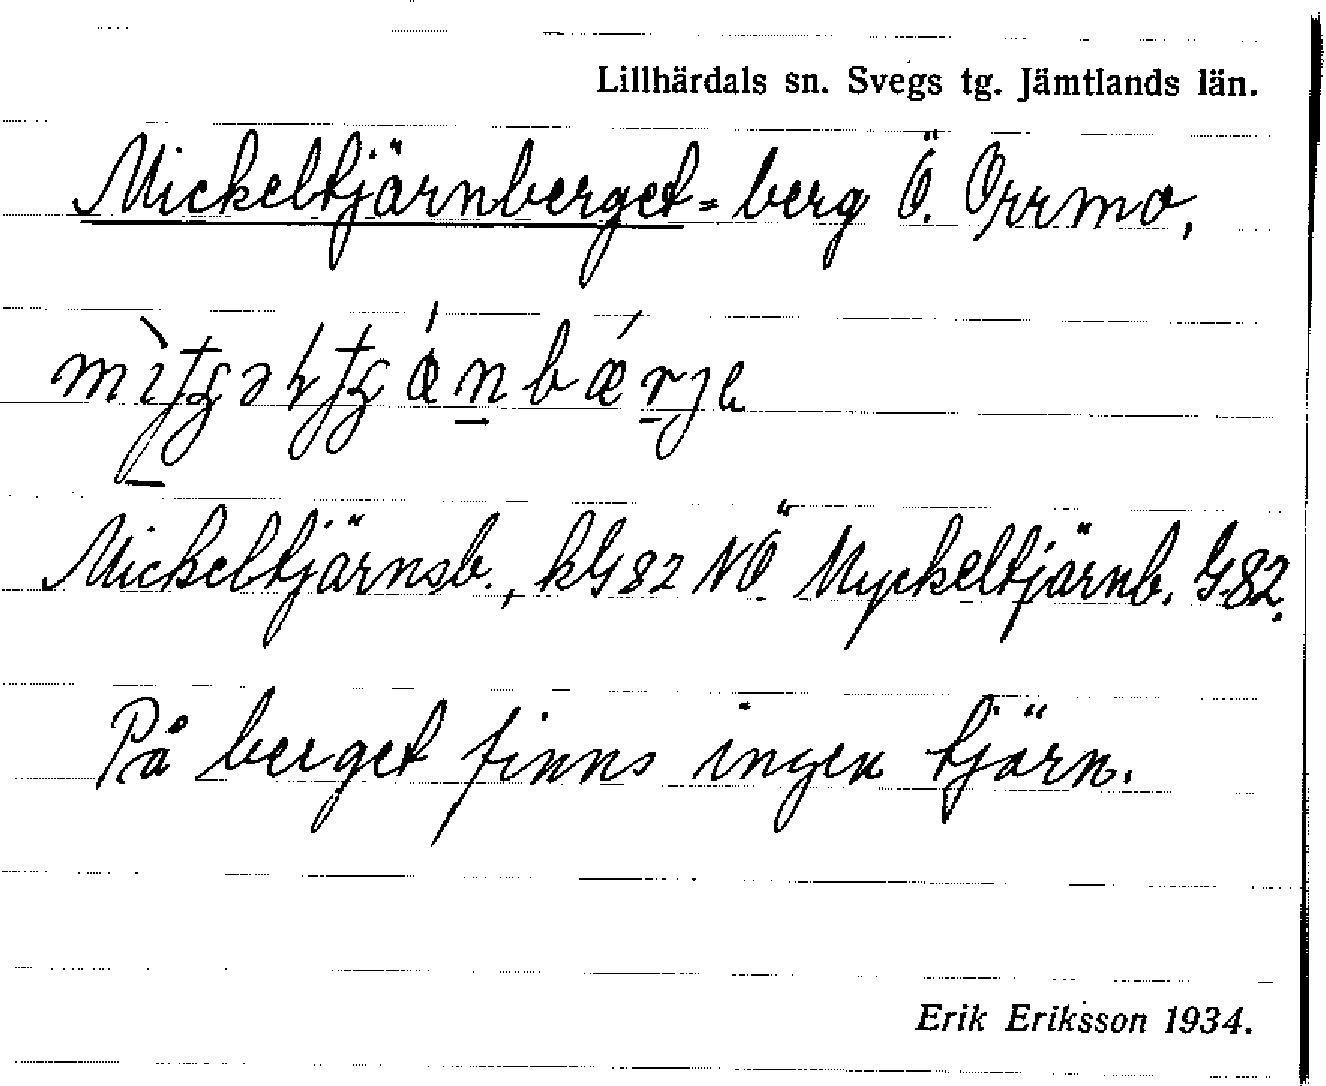 Lillhärdals sn. Svegs tg. Jämtlands län.
Mickeltjärnberget = berg Ö. Orrmo,
Mickeltjärnsb., kG82 NÖ. Myckeltjärnb. G.82.
På berget finns ingen tjärn.
Erik Eriksson 1934.